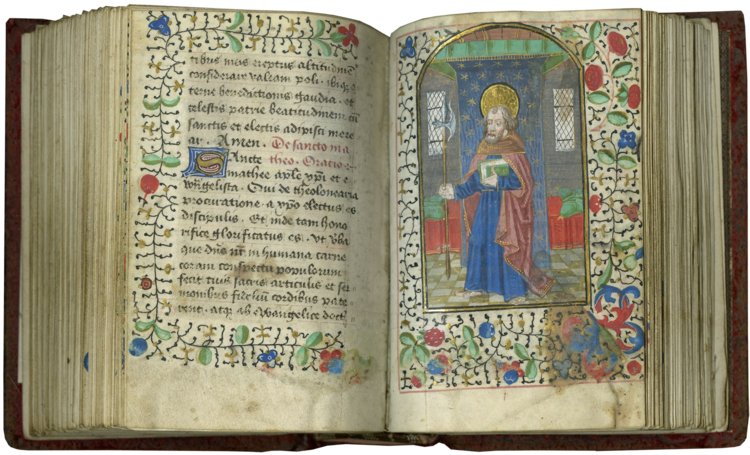 tibus meis ereptus altitudinē
considerare valeam poli. ibiq; e
terne benedictionis gaudia. et
celestis patrie beatitudinem cū
sanctis et electis adipisci mere
ar. Amen. De sancto ma
Sancte theo. Oratio
mathee aplē xp̄i et e
wangelista. Qui de theolonearia
procuratione a xp̄o electus es
discipulis. Et inde tam hono
rifice glorificatus es. Ut v̄ba
que dn̄s nr̄ in humana carne
coram conspectu populorum
fecit tuis sacris articulis et ser
monibus fideliū cordibus pate
rent. atq; ab ewangelice doct